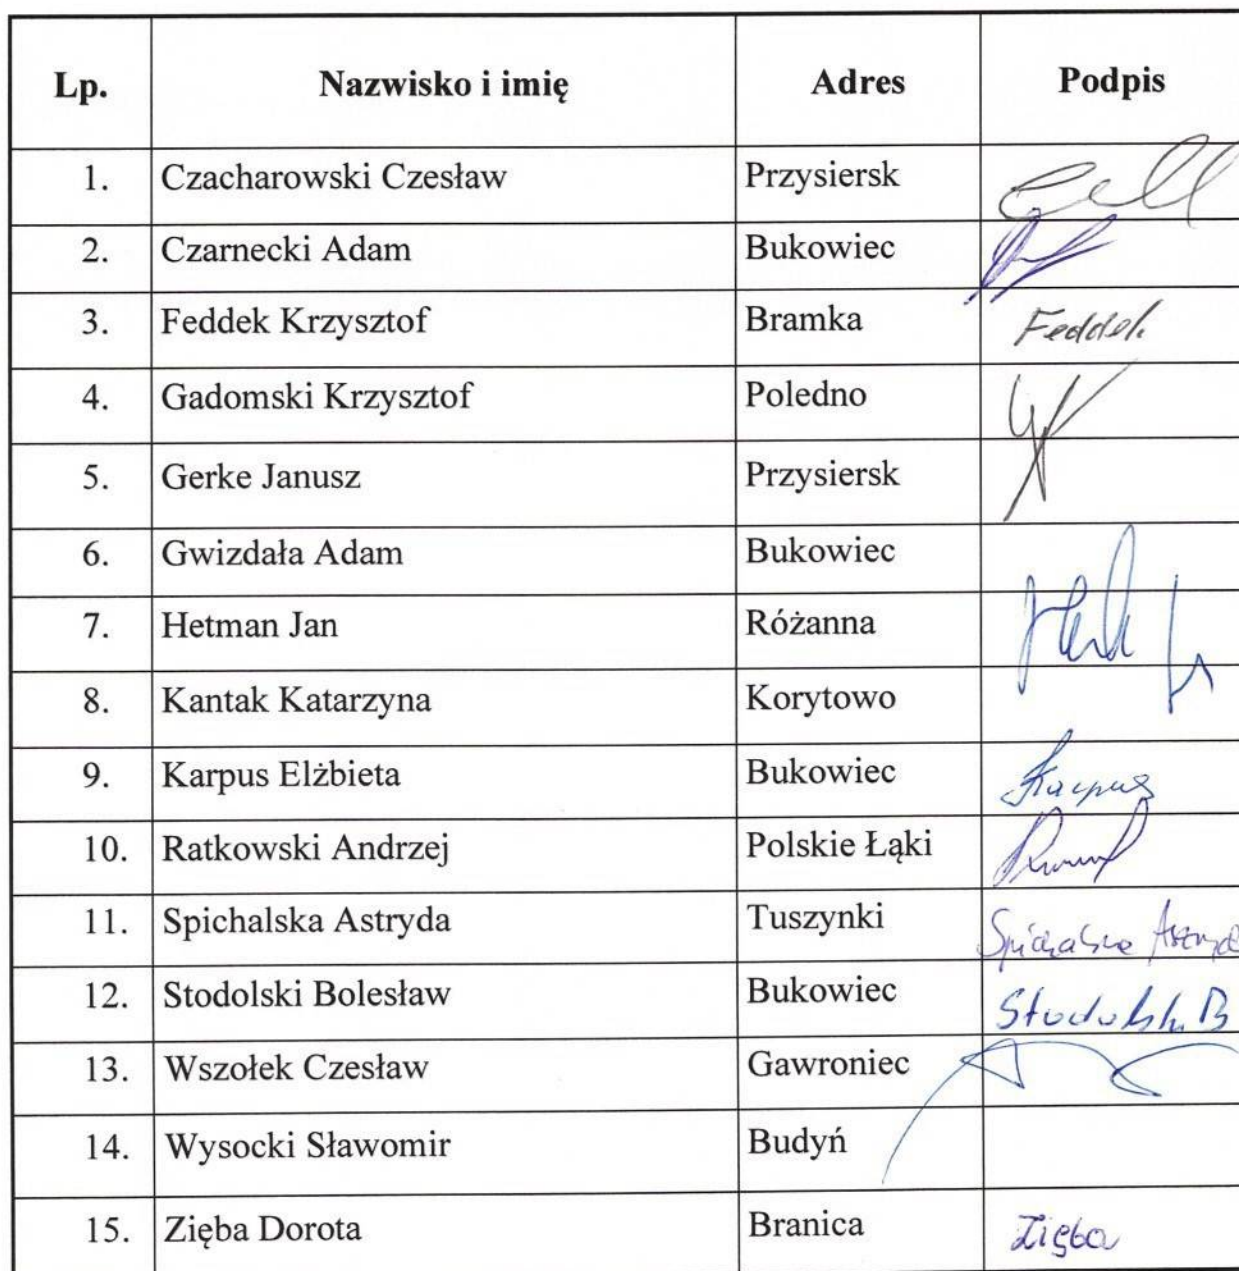 Lp. Nazwisko i imię Adres Podpis
1. Czacharowski Czesław Przysiersk
2. Czarnecki Adam Bukowiec
3. Feddek Krzysztof Bramka Feddek
4. Gadomski Krzysztof Poledno
5. Gerke Janusz Przysiersk
6. Gwizdała Adam Bukowiec
7. Hetman Jan Różanna
8. Kantak Katarzyna Korytowo
9. Karpus Elżbieta Bukowiec Karpus
10. Ratkowski Andrzej Polskie Łąki
11. Spichalska Astryda Tuszynki Spichalska
12. Stodolski Bolesław Bukowiec Stodolski B
13. Wszołek Czesław Gawroniec
14. Wysocki Sławomir Budyń
15. Zięba Dorota Branica Zięba